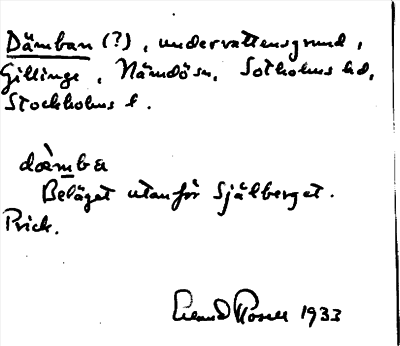 Dämban (?), undervattensgrund,
Gillinge, Nämdö sn, Sotholms hd,
Stockholms l.
dàmba
Beläget utanför Själberget.
Prick.
1933